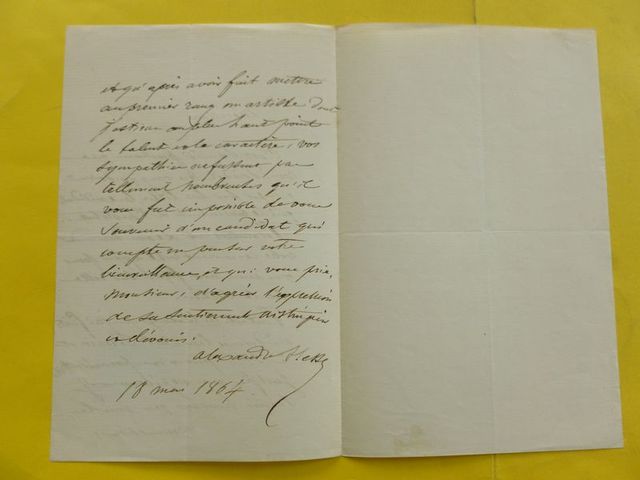 et qu'après avoir fait mettre
au premier rang un artiste dont
j'estime au plus haut point
le talent et le caractère, vos
sympathies ne fussent pas
tellement nombreuses qu'il
vous fut impossible de vous
souvenir d'un candidat qui
compte un peu sur votre
bienveillance, et qui vous prie,
Monsieur, d'agréer l'expression
de ses sentiments distingués
et dévoués.
alexandre
18 mai 1864